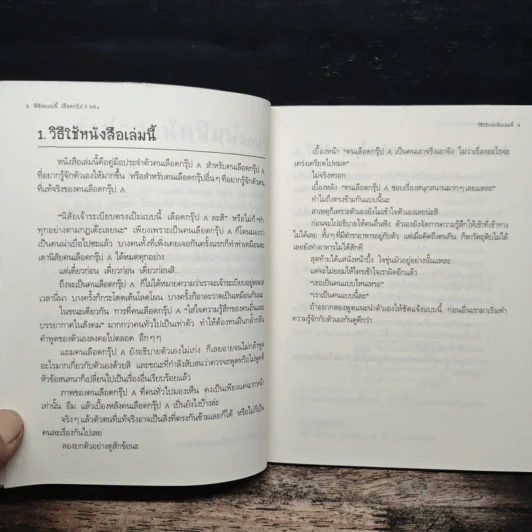 2 นิสัยแบบนี้ เลือดกรุ๊ป A แหง
1. วิธีใช้หนังสือเล่มนี้
หนังสือเล่มนี้คือคู่มือประจำตัวคนเลือดกรุ๊ป A สำหรับคนเลือดกรุ๊ป A
ที่อยากรู้จักตัวเองให้มากขึ้น หรือสำหรับคนเลือดกรุ๊ปอื่นๆ ที่อยากรู้จักตัวตน
ที่แท้จริงของคนเลือดกรุ๊ป A
"นิสัยเจ้าระเบียบตรงเป๊ะแบบนี้ เลือดกรุ๊ป A ละสิ" หรือไม่ก็ "ทำ
ทุกอย่างตามกฎเด๊ะเลยนะ" เพียงเพราะเป็นคนเลือดกรุ๊ป A ก็โดนมองว่า
เป็นคนน่าเบื่อไปซะแล้ว บางคนทั้งที่เพิ่งเคยเจอกันครั้งแรกก็ทำท่าเหมือนจะ
เดานิสัยคนเลือดกรุ๊ป A ได้หมดทุกอย่าง
แต่เดี๋ยวก่อน เดี๋ยวก่อน เดี๋ยวก่อนสิ...
ถึงจะเป็นคนเลือดกรุ๊ป A ก็ไม่ได้หมายความว่าเราจะเจ้าระเบียบอยู่ตลอด
เวลานี่นา บางครั้งก็กระโดดเต้นโลดโผน บางครั้งก็อาละวาดเป็นเหมือนกันนะ
ในขณะเดียวกัน การที่คนเลือดกรุ๊ป A "ใส่ใจความรู้สึกของคนอื่นและ
บรรยากาศในสังคม" มากกว่าคนทั่วไปเป็นเท่าตัว ทำให้ต้องทนฝืนกล้ำกลืน
คำพูดของตัวเองลงคอไปตลอด อึกๆๆ
แถมคนเลือดกรุ๊ป A ยังอธิบายตัวเองไม่เก่ง ก็เลยอาจจนไม่กล้าพูด
อะไรมากเกี่ยวกับตัวเองด้วยสิ และขณะที่กำลังสับสนว่าควรจะพูดหรือไม่พูดดี
หัวข้อสนทนาก็เปลี่ยนไปเป็นเรื่องอื่นเรียบร้อยแล้ว
ภาพของคนเลือดกรุ๊ป A ที่คนทั่วไปมองเห็น คงเป็นเพียงแค่ฉากหน้า
เท่านั้น อืม แล้วเบื้องหลังคนเลือดกรุ๊ป A เป็นยังไงบ้างล่ะ
จริงๆ แล้วตัวตนที่แท้จริงอาจเป็นสิ่งที่ตรงกันข้ามเลยก็ได้ หรือไม่ก็เป็น
คนละเรื่องกันไปเลย
ลองยกตัวอย่างดูสักข้อนะ
วิธีใช้หนังสือเล่มนี้ 3
เบื้องหน้า "คนเลือดกรุ๊ป A เป็นคนเอาจริงเอาจัง ไม่ว่าเรื่องอะไรก็จะ
เคร่งเครียดไปหมด"
ไม่จริงหรอก
เบื้องหลัง "คนเลือดกรุ๊ป A ชอบเรื่องสนุกสนานมากๆ เลยแหละ"
ทำไมถึงตรงข้ามกันแบบนี้นะ
สาเหตุก็เพราะตัวเองยังไม่เข้าใจตัวเองเลยน่ะสิ
ก่อนจะไปอธิบายให้คนอื่นฟัง ตัวเองยังจัดการความรู้สึกให้เข้าที่เข้าทาง
ไม่ได้เลย
เลยยังทำอาหารไม่ได้สักที
แต่จะไม่ยอมให้ใครเข้าเราผิดอีกแล้ว
"เธอเป็นคนแบบไหนเหรอ"
"เราเป็นคนแบบนี้ละ"
ถ้าอยากลองพูดแนะนำตัวเองให้ชัดแจ้งแบบนี้ ก่อนอื่นเรามาเริ่มทำ
ความรู้จักกับตัวเองกันดูดีกว่า